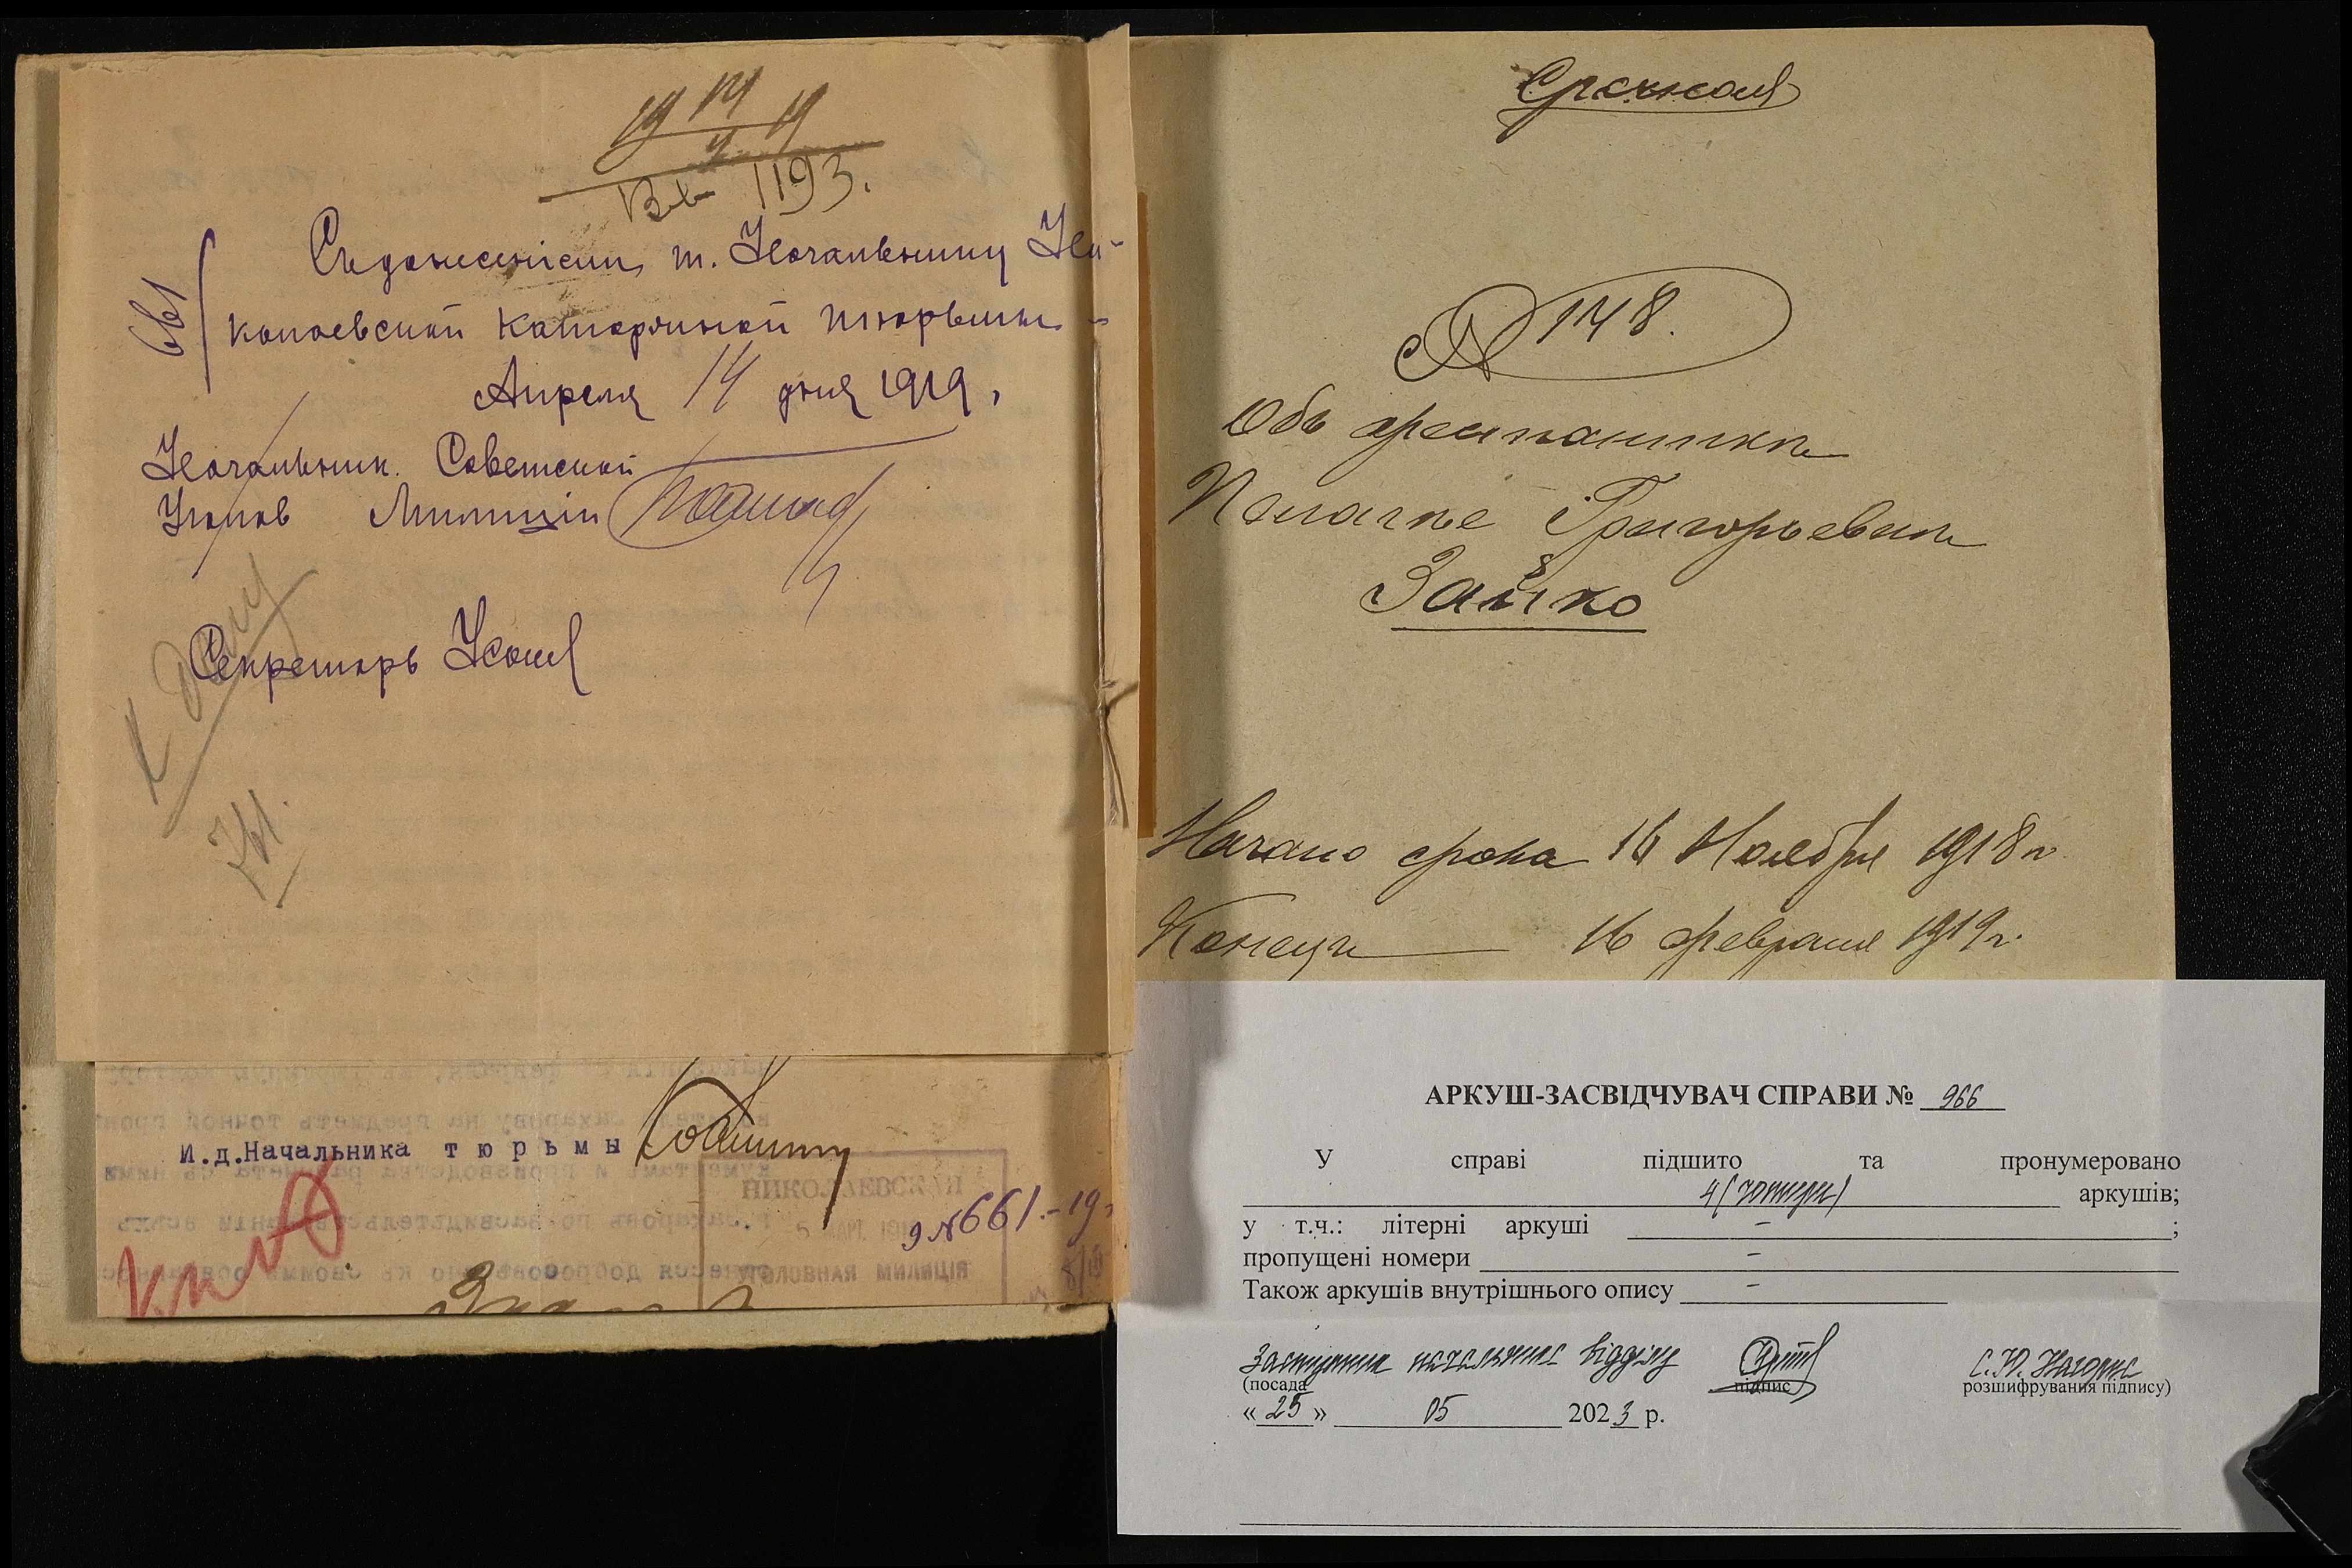 19 14/4 19
Вх 1193.
661
Съ донесеніемъ т. Начальнику Ни-
колаевской каторжной тюрьмы -
Апреля 14 дня 1919,
Начальник. Советской
Уголов Милиціи
Секретарь
К делу
И.д.Начальника тюрьмы
НИКОЛАЕВСКАЯ
УГОЛОВНАЯ МИЛИЦІЯ
№661.-19
Срочная
№ 148.
Объ арестантке
Пелагее Григорьевне
Зайко
Начало срока 16 Ноября 1918 г.
Конецъ 16 февраля 1919 г.
АРКУШ-ЗАСВІДЧУВАЧ СПРАВИ № 966
У справі підшито та пронумеровано
4 (чотири) аркушів;
у т.ч.: літерні аркуші – ;
пропущені номери –
Також аркушів внутрішнього опису –
Заступник начальника відділу
(посада підпис розшифрування підпису)
« 25 » 05 2023 р.